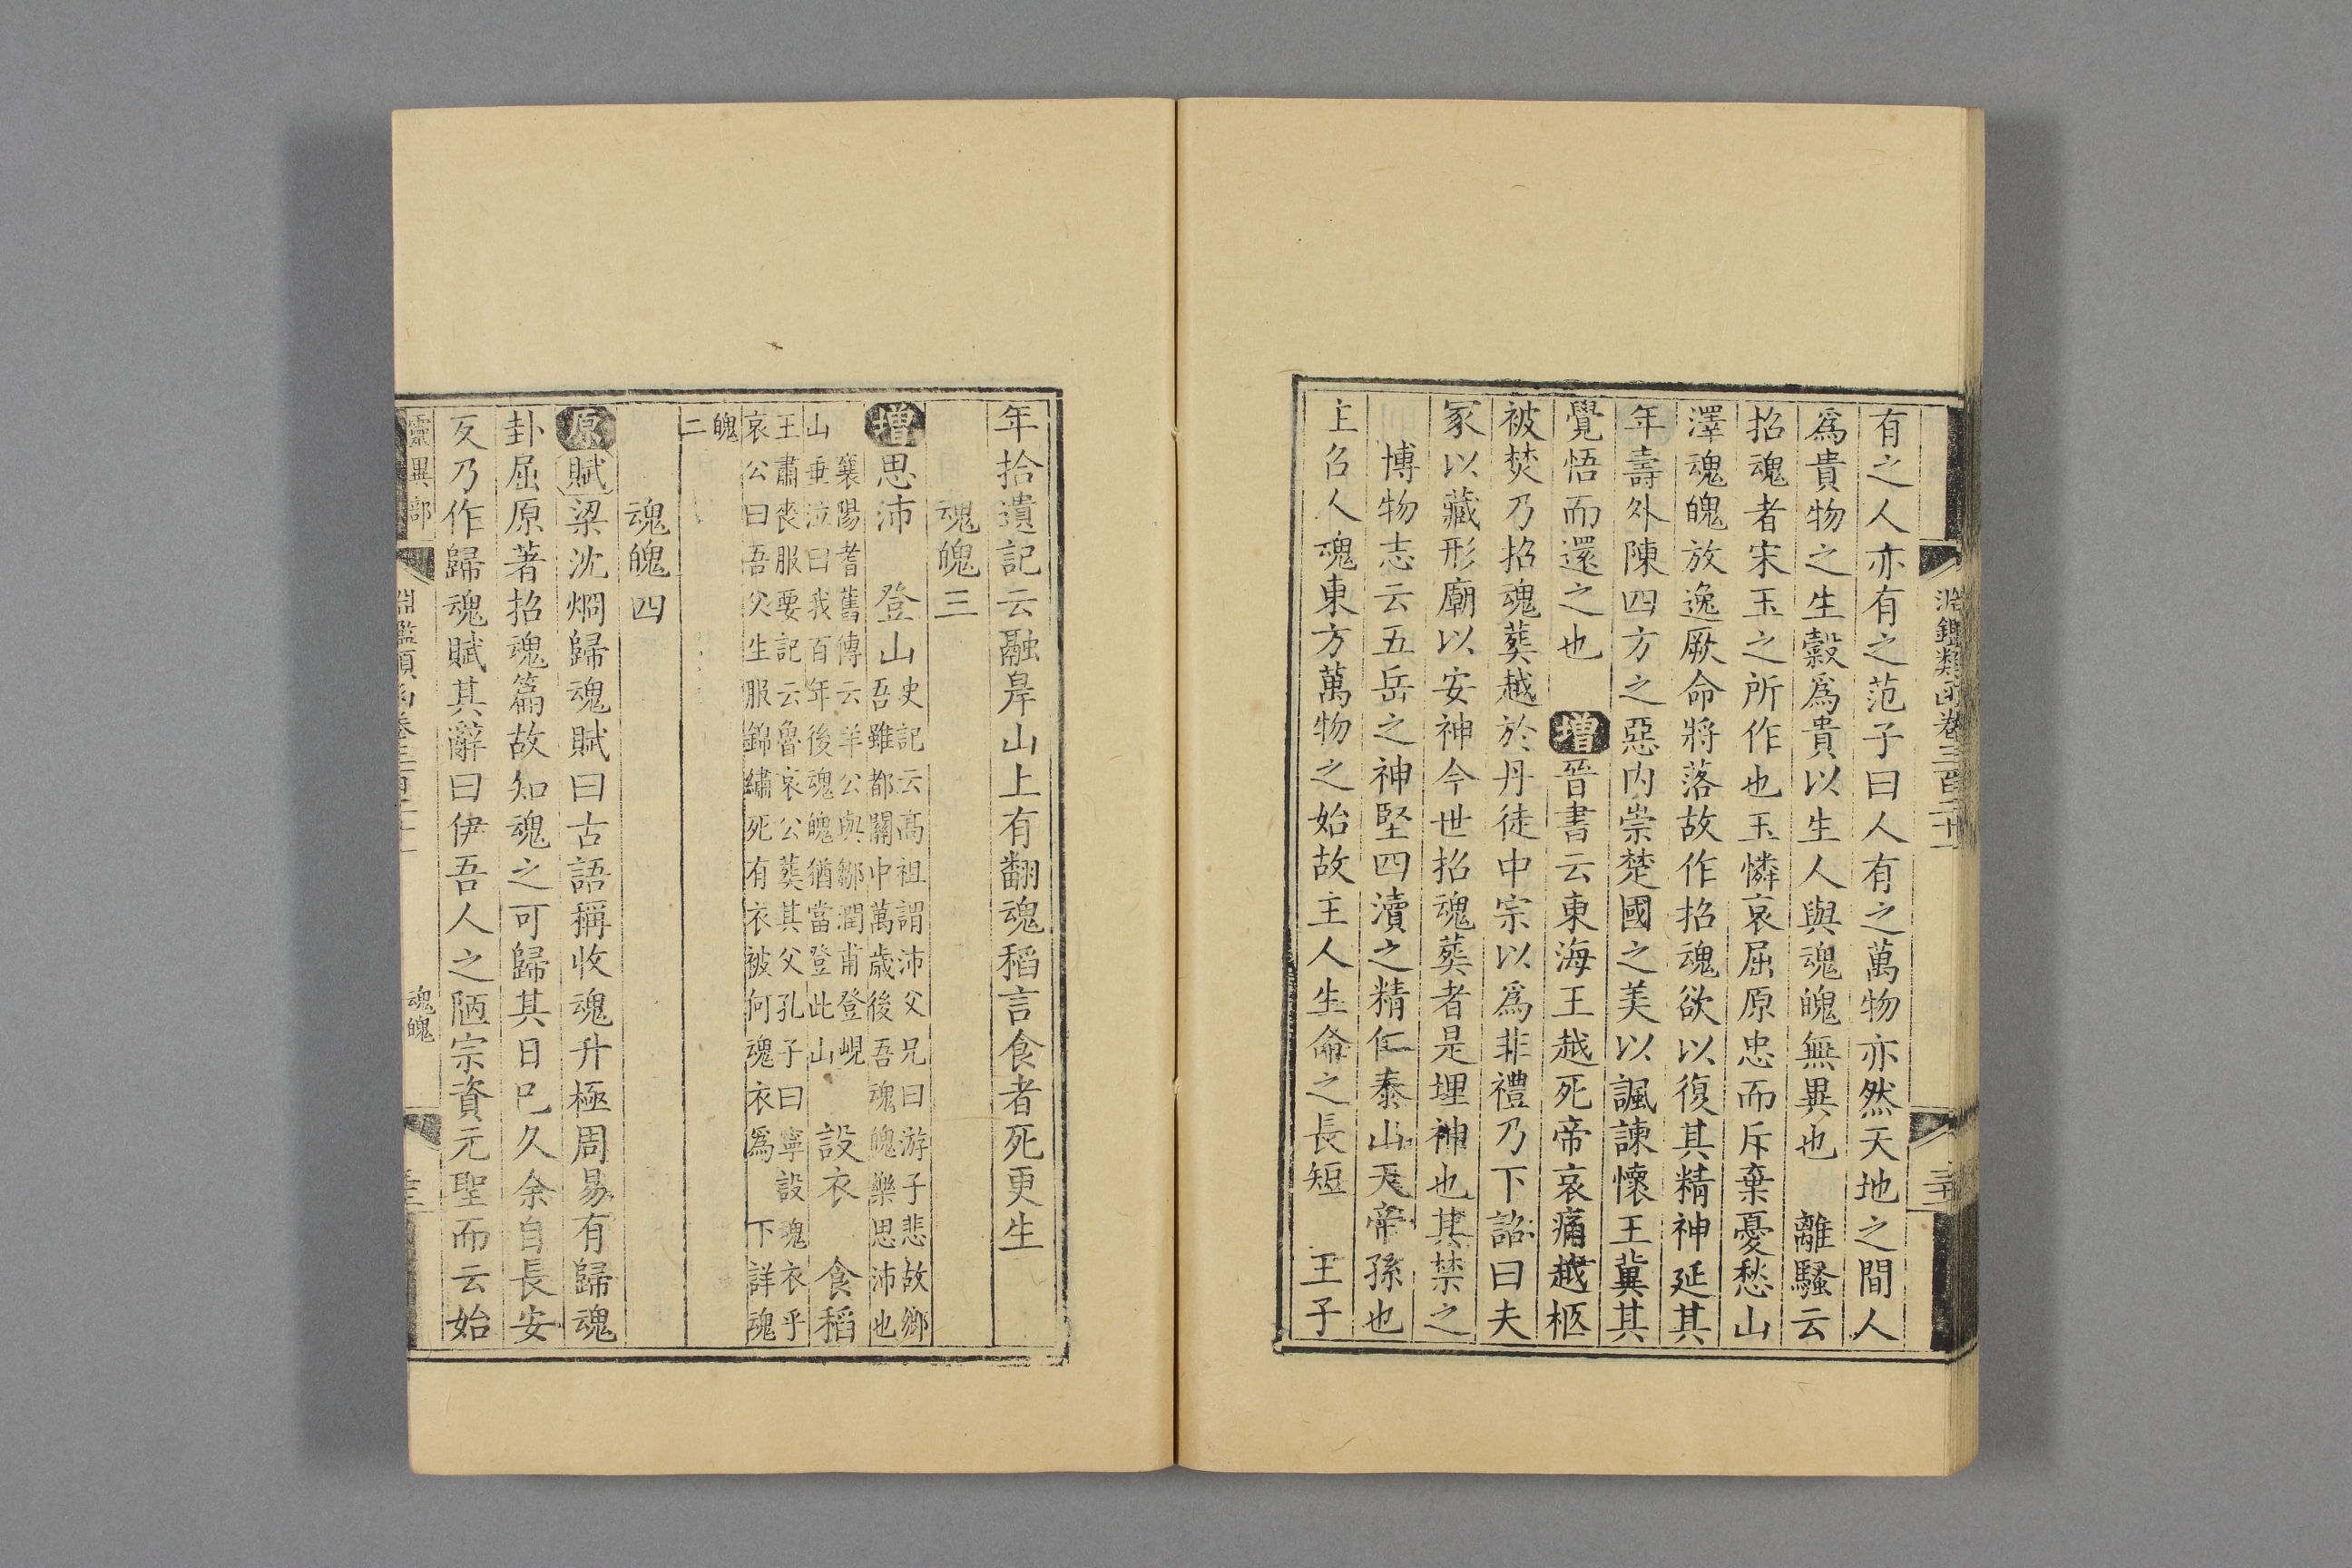 淵鑑類函卷三百二十一
有之人亦有之范子曰人有之萬物亦然天地之間人
爲貴物之生穀爲貴以生人與魂魄無異也　離騷云
招魂者宋玉之所作也玉憐哀屈原忠而斥棄憂愁山
澤魂魄放逸厥命將落故作招魂欲以復其精神延其
年壽外陳四方之惡内崇楚國之美以諷諫懷王冀其
覺悟而還之也　增晉書云東海王越死帝哀痛越柩
被焚乃招魂葬越於丹徒中宗以爲非禮乃下詔曰夫
冢以藏形廟以安神今世招魂葬者是埋神也其禁之
博物志云五岳之神堅四瀆之精仁泰山天帝孫也
主召人魂東方萬物之始故主人生命之長短　王子
年拾遺記云融臯山上有翻魂稻言食者死更生
魂魄三
增思沛　登山史記云高祖謂沛父兄曰游子悲故鄉
吾雖都關中萬歲後吾魂魄樂思沛也
襄陽耆舊傳云羊公與鄒潤甫登峴
山垂泣曰我百年後魂魄猶當登此山　設衣　食稻
王肅喪服要記云魯哀公葬其父孔子曰寧設魂衣乎
哀公曰吾父生服錦繡死有衣被何魂衣爲　下詳魂
魄
二
魂魄四
原賦梁沈烱歸魂賦曰古語稱收魂升極周易有歸魂
卦屈原著招魂篇故知魂之可歸其日已久余自長安
反乃作歸魂賦其辭曰伊吾人之陋宗資元聖而云始
靈異部　淵鑑類函卷三百二十一　魂魄